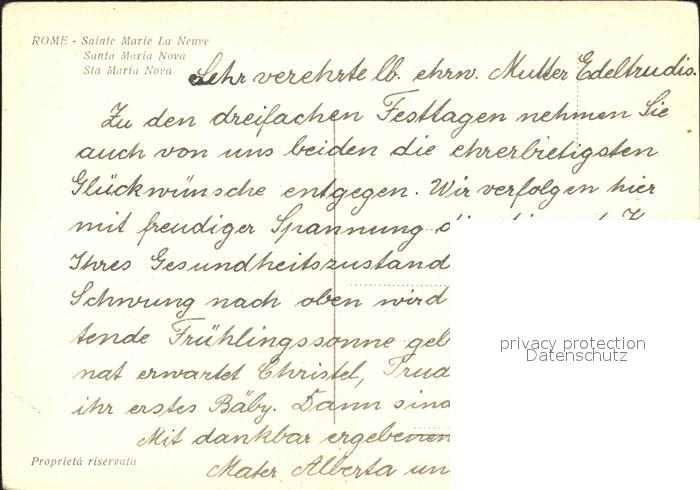 ROME - Sainte Marie La Neuve
Santa Maria Nova
Sta Maria Nova
Sehr verehrte lb. ehrw. Mutter Edeltrudis.
Zu den dreifachen Festtagen nehmen Sie
auch von uns beiden die ehrerbietigsten
Glückwünsche entgegen. Wir verfolgen hier
mit freudiger Spannung
Ihres Gesundheitszustand
Schwung nach oben wird
tende Frühlingssonne geb
nat erwartet Christel,
ihr erstes Bäby. Dann sind
Mit dankbar ergebenen
Mater Alberta un
privacy protection
Datenschutz
Proprietà riservata